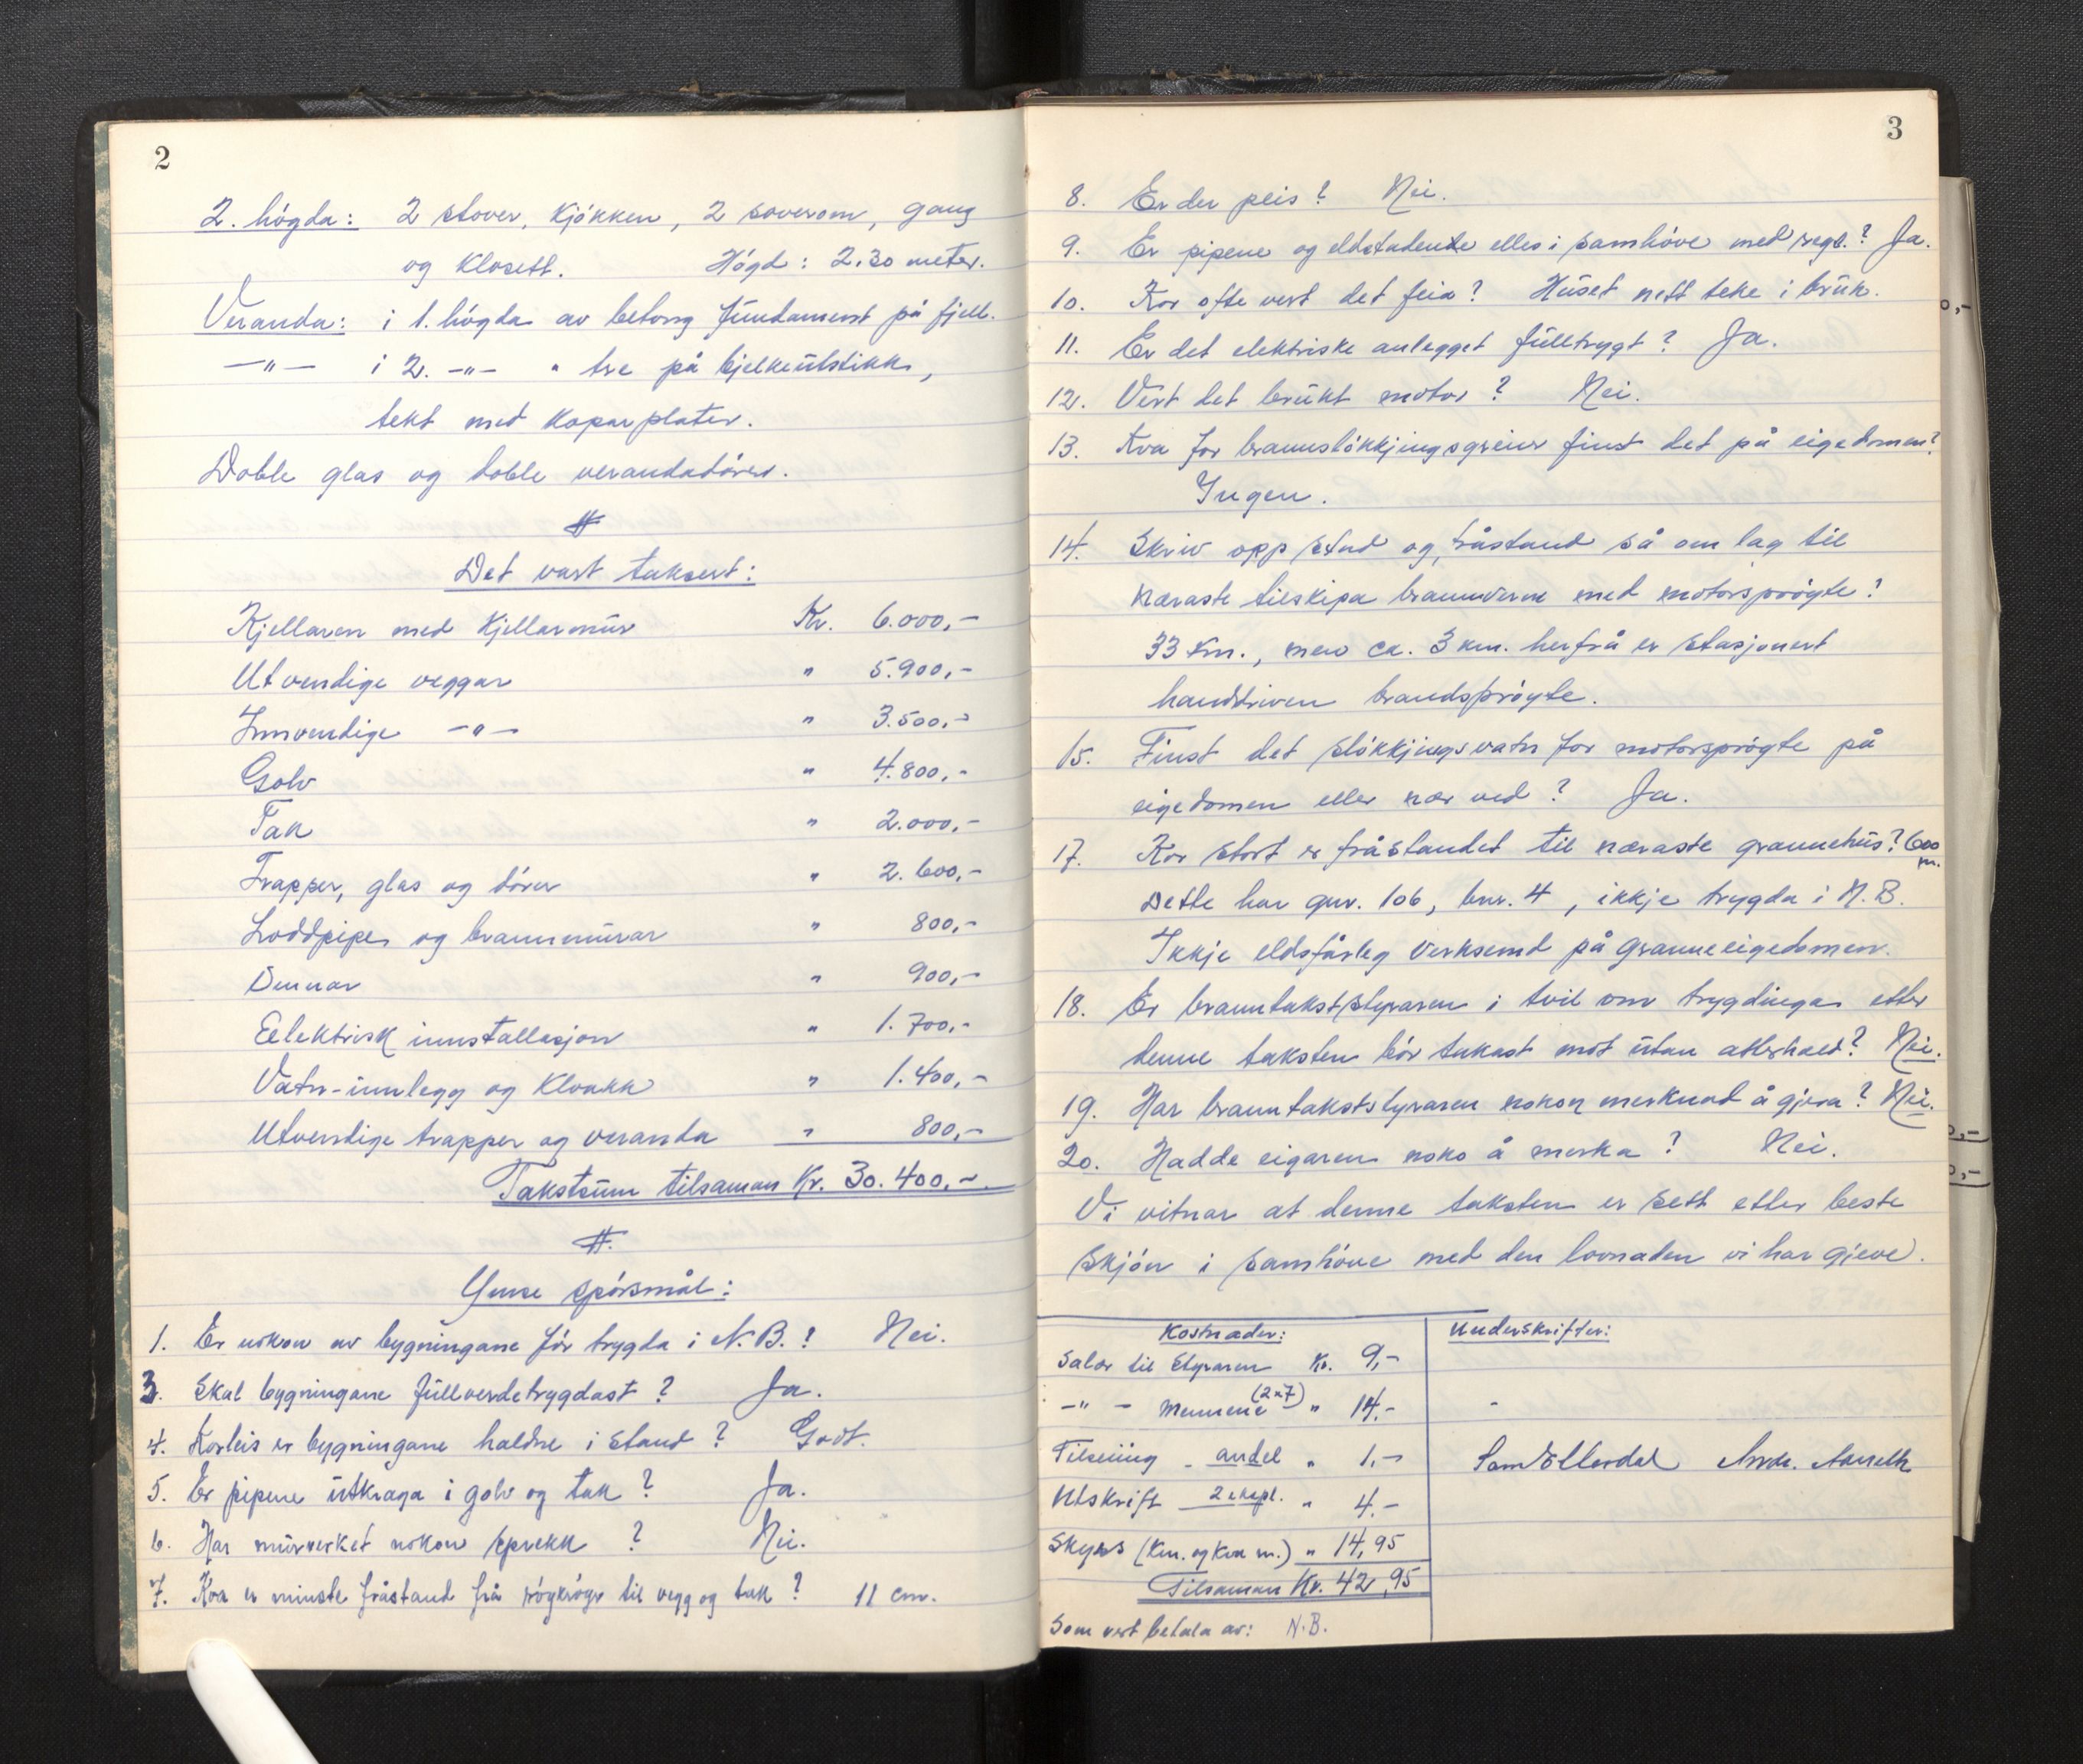 2
2. högda: 2 stover, kjökken, 2 soverom, gang
og klosett. Högd: 2.30 meter.
Veranda: i 1. högda av betong fundament på fjell.
—"— i 2. —"— " tre på bjelkeutstikk,
tekt med koparplater.
Doble glas og doble verandadörer.
#
Det vart taksert:
Kjellaren med kjellarmur Kr. 6.000,-
Utvendige veggar " 5.900,-
Innvendige —"— " 3.500,-
Golv " 4.800,-
Tak " 2.000,-
Trapper, glas og dörer " 2.600,-
Loddpipe og brannmurar " 800,-
Omnar " 900,-
Eelektrisk innstallasjon " 1.700,-
Vatn-innlegg og kloakk " 1.400,-
Utvendige trapper og veranda " 800,-
Takstsum tilsaman Kr. 30.400,-.
#.
Ymse spörsmål:
1. Er nokon av bygningane för trygda i N.B.? Nei.
3. Skal bygningane fullverdetrygdast? Ja.
4. Korleis er bygningane haldne i stand? Godt.
5. Er pipene utkraga i golv og tak? Ja.
6. Har murverket nokon sprekk? Nei.
7. Kva er minste fråstand frå röykröyr til vegg og tak? 11 cm.
3
8. Er der peis? Nei.
9. Er pipene og eldstadende elles i samhöve med regl.? Ja.
10. Kor ofte vert det feia? Huset nett teke i bruk.
11. Er det elektriske anlegget fulltrygt? Ja.
12. Vert det brukt motor? Nei.
13. Kva for brannslökkjingsgreier finst det på eigedomen?
Ingen.
14. Skriv opp stad og fråstand så om lag til
næraste tilskipa brannverne med motorspröyte?
33 km., men ca. 3 km. herfrå er stasjonert
handdriven brandspröyte.
15. Finst det slökkjingsvatn for motorspröyte på
eigedomen eller nær ved? Ja.
17. Kor stort er fråstandet til næraste grannehus? 600 m.
Dette har gnr. 106, bnr. 4, ikkje trygda i N.B.
Ikkje eldsfårleg verksemd på granneeigedomen.
18. Er branntakststyraren i tvil om trygdinga etter
denne taksten bör takast mot utan atterhald? Nei.
19. Har branntakststyraren nokon merknad å gjera? Nei.
20. Hadde eigaren noko å merka? Nei.
Vi vitnar at denne taksten er sett etter beste
skjön i samhöve med den lovnaden vi har gjeve.
Kostnader: Underskrifter:
Salær til Styraren Kr. 9,-
—"— Mennene (2x7) " 14,-
Tilseiing - andel " 1,-
Utskrift 2 ekspl. " 4,-
Skyss (km. og kva m.) " 14,95
Tilsaman Kr. 42,95
Som vert betala av: N.B.